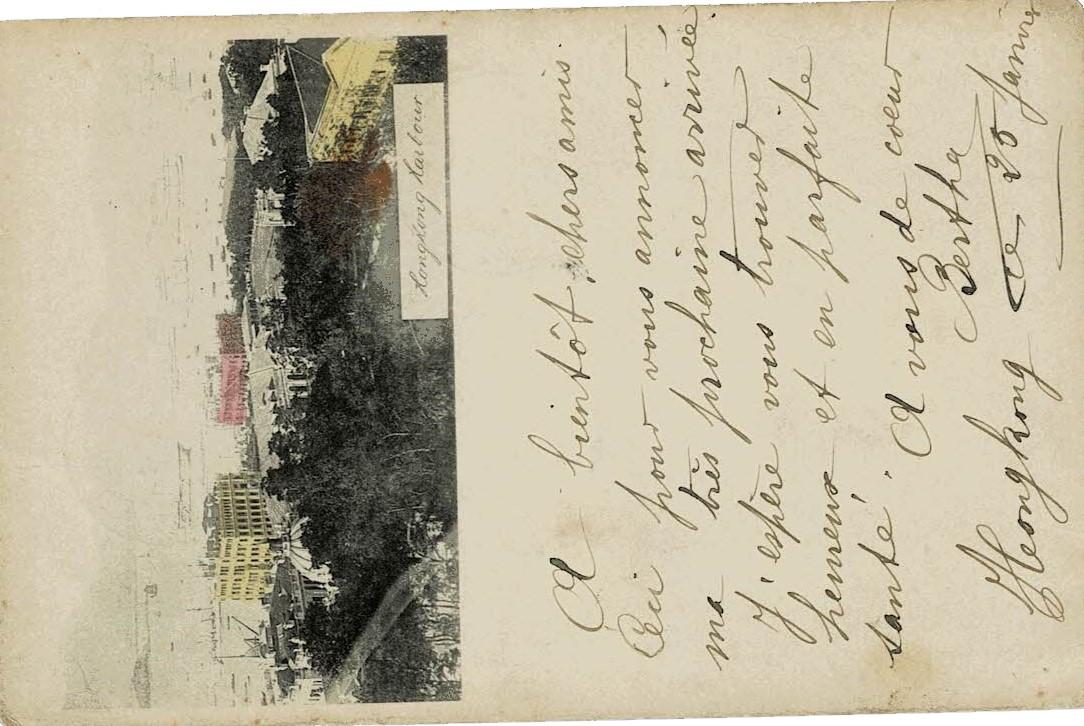 Hongkong Harbour
A bientôt, chers amis
Ceci pour vous annoncer
ma très prochaine arrivée
J'espère vous trouver
heureux et en parfaite
santé. A vous de cœur
Bertha
Hongkong ce 25 janvier